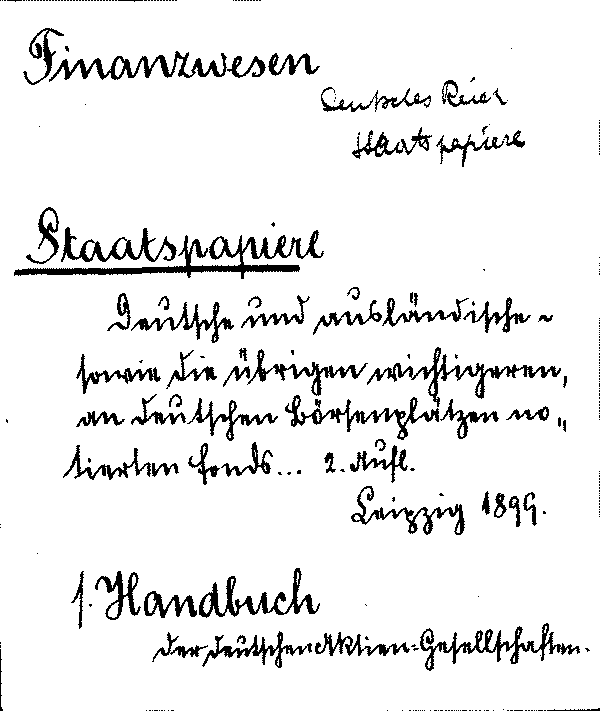 Finanzwesen
Deutsches Reich
Staatspapiere
Staatspapiere
Deutsche und ausländische -
sowie die übrigen wichtigeren,
an deutschen Börsenplätzen no„
tierten Fonds... 2. Aufl.
Leipzig 1899.
s. Handbuch
der deutschen Aktien-Gesellschaften.